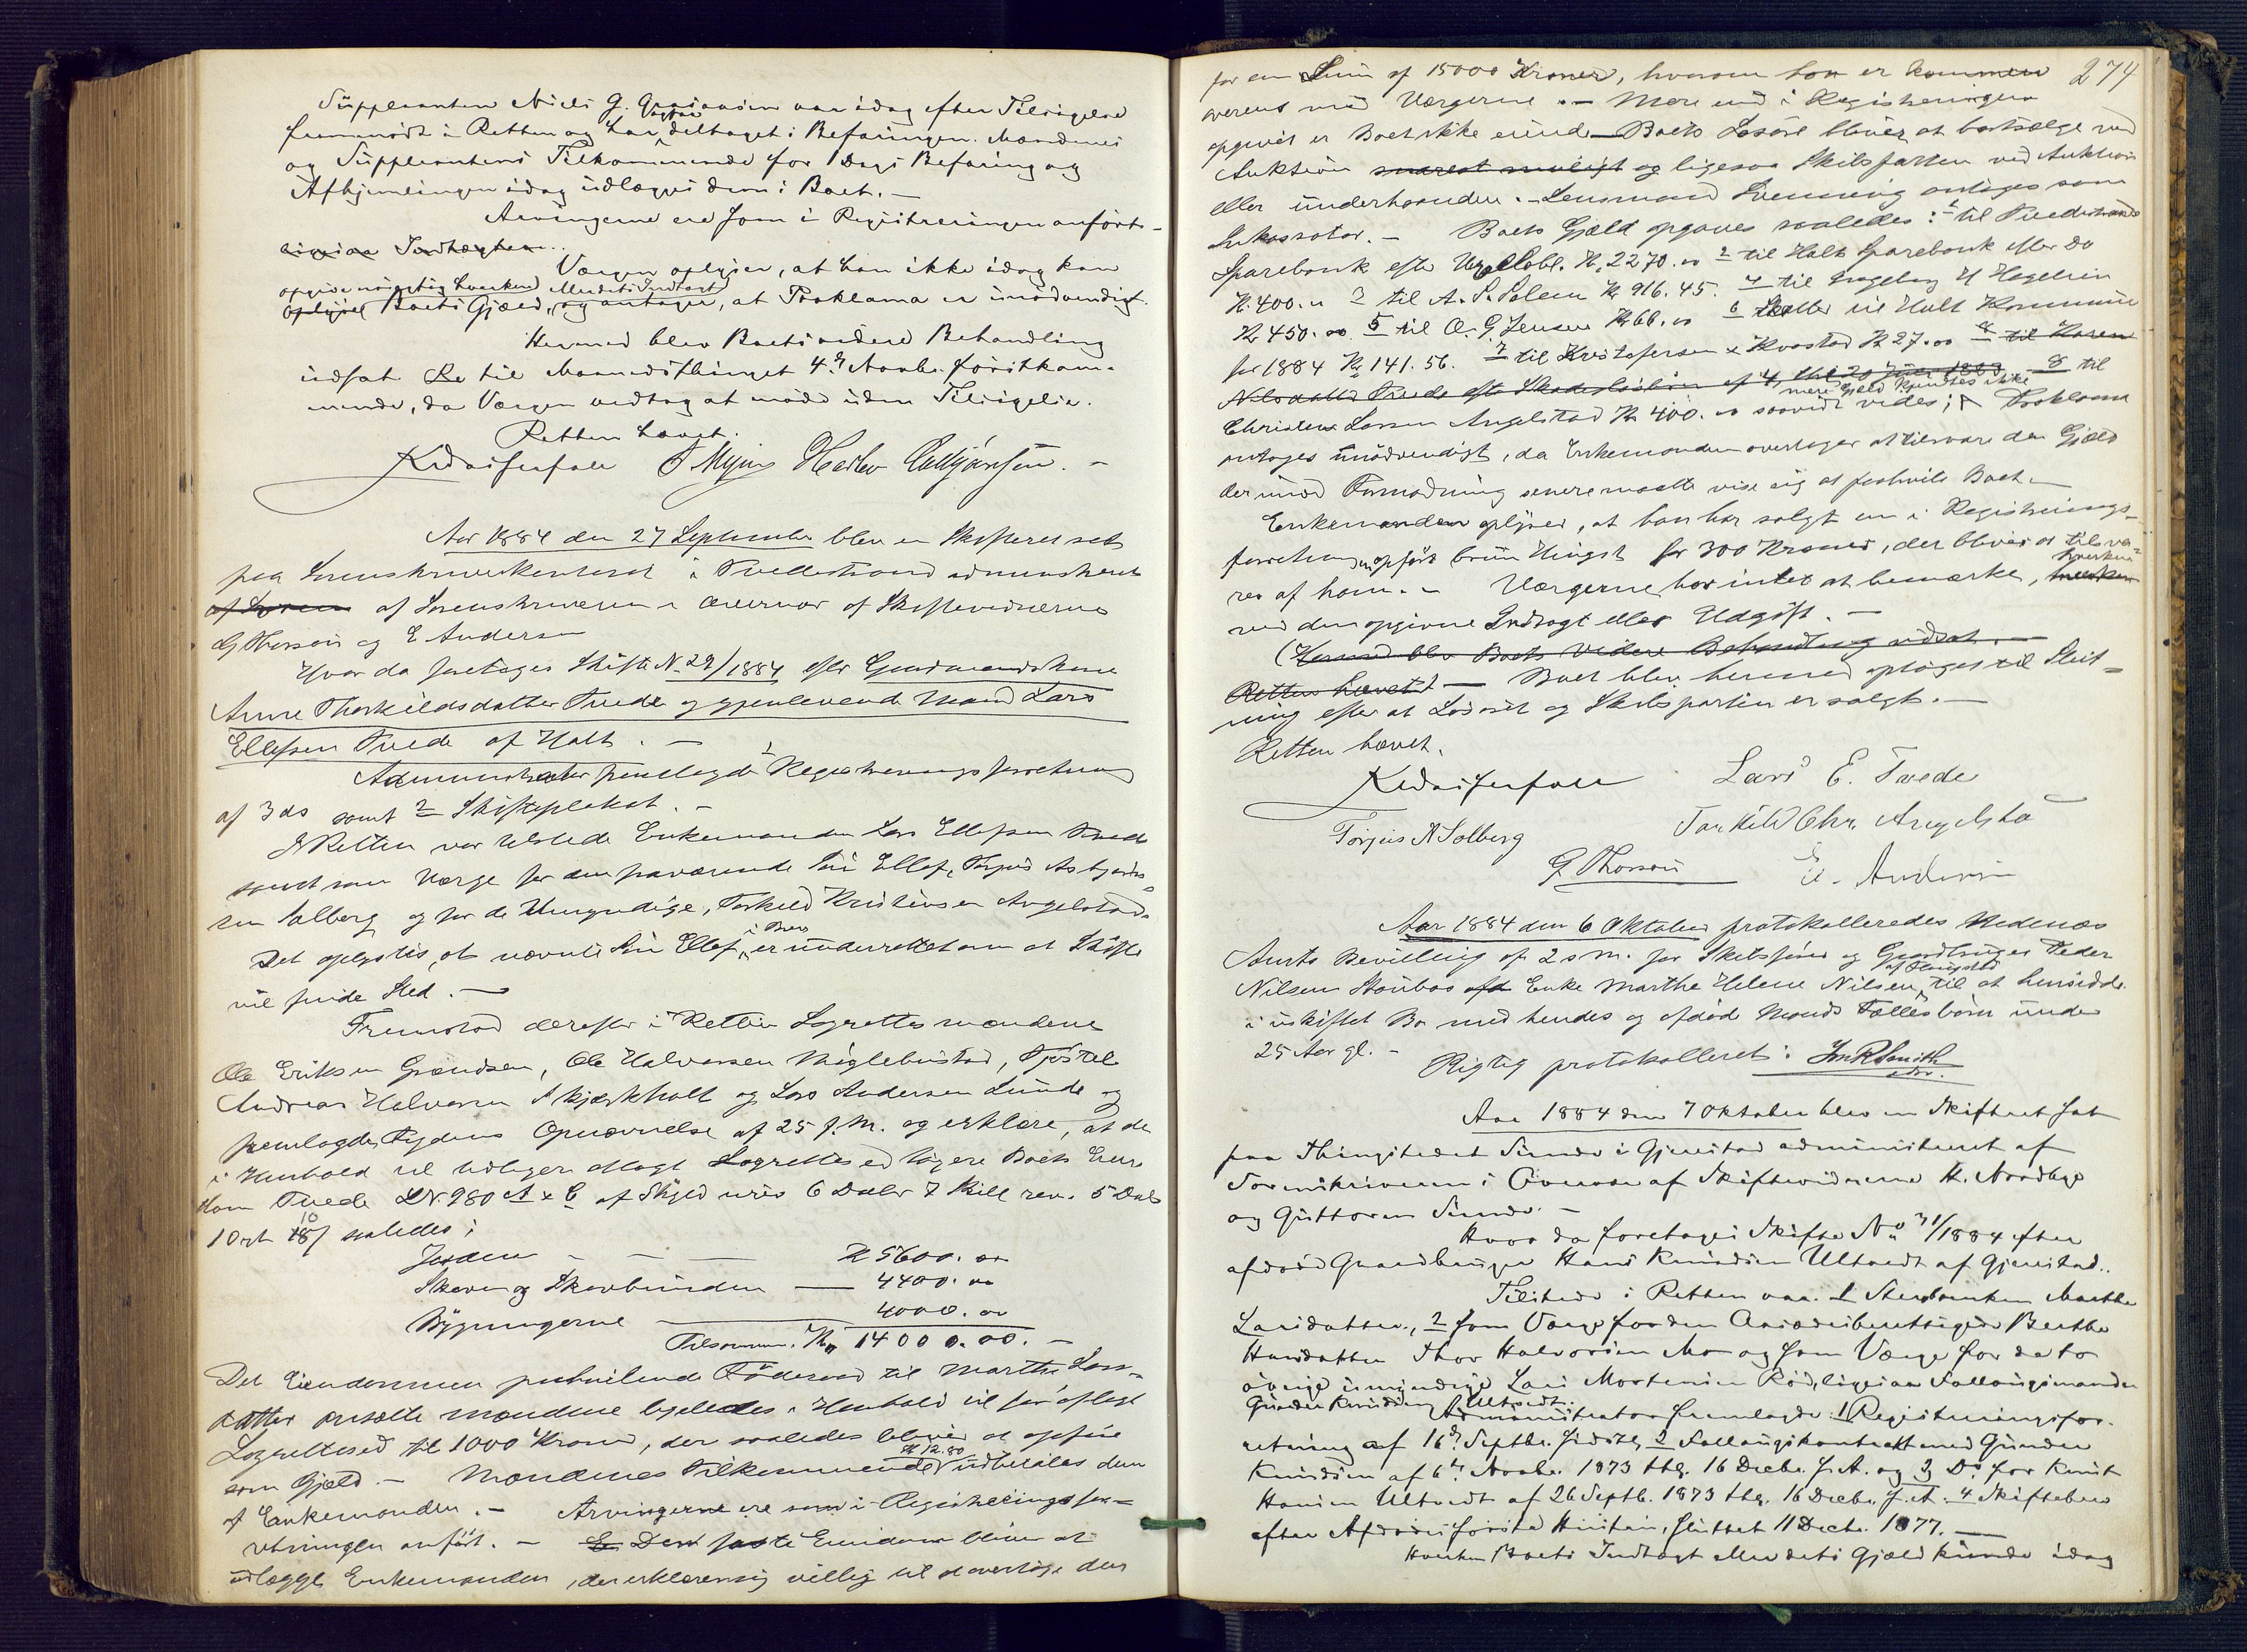 Suppleanten Niels G. var idag efter Tilsigelse
fremmødt i Retten og har deltaget i Befaringen. Mændenes
og Suppleantens Tilkommende for 1 Dags Befaring og
Afhjemlingen idag udlægges dem i Boet. —
Arvingerne ere som i Registreringen anført —
ligesaa Indtægten..
Værgen oplyser, at han ikke idag kan
opgive nøiagtig hverken Boets Indtægt
oplyse Boets Gjæld, og antager, at Proklama er unødvendigt.
Hermed blev Boets videre Behandling
udsat til Maanedsthinget 4de Novbr. førstkom-
mende, da Værgen vedtog at møde uden Tilsigelse.
Retten hævet.
Aar 1884 den 27 September blev en Skifteret sat
paa Sorenskriverkontoret i Tvedestrand administreret
af Soren af Sorenskriveren i Overvær af Skiftevidnerne
G Thorson og E Andersen
Hvor da foretages Skifte No 29/1884 efter Gaardmandskone
Anne Thorkildsdatter Tvede og gjenlevende Mand Lars
Ellefsen Tvede af Holt. —
Administrator fremlagde 1 Registreringsforretning
af 3 ds samt 2 Skifteplakat. —
I Retten var tilstede Enkemanden Lars Ellefsen Tvede
samt som Værge for den fraværende Søn Ellef, Torjus Asbjørns-
sen Solberg og for de Umyndige, Torkild Kristensen Angelstad.
Det oplystes, at nævnte Søn Ellef i Brev er underrettet om at Skifte
vil finde Sted. —
Fremstod derefter i Retten Lagrettesmændene
Ole Eriksen Grændsen, Ole Halvorsen Møglebustad,
Andreas Halvorsen Skjerkholt og Lars Andersen Lunde og
fremlagde Fogdens Opnævnelse af 25 f. M. og erklære, at de
i Henhold til tidligere aflagt Lagrettesed taxere Boets Eien-
dom Tvede LNr. 280 A & C af Skyld urev. 6 Daler 7 Skill rev. 5 Daler
1 Ort 10 ß saaledes:
Jorden — — — K 5600. 00
Skoven og Skovbunden — 4400. 00
Bygningerne — 4000. 00
Tilsammen Kr 14000.00. —
Det Eiendommen paahvilende Føderaad til Marthe Lars-
datter ansatte Mændene ligeledes i Henhold til før aflagt
Lagrettesed til 1000 Kroner, der saaledes bliver at opføre
som Gjæld. — Mændenes Tilkommende K 12.80 udbetales dem
af Enkemanden. — Arvingerne ere som i Registreringsfor-
retningen anført. — Den faste Eiendom bliver at
udlægge Enkemanden, der erklærer sig villig til at overtage den
274
for en Sum af 15000 Kroner, hvorom han er kommen
overens med Værgerne. — Mere end i Registreringen
opgivet er Boet ikke eiende — Boets Løsøre bliver at bortsælge ved
Auktion snarest muligt og ligesaa Skibsparten ved Auktion
eller underhaanden. — Lensmand Svenning antages som
Inkassator. — Boets Gjæld opgaves saaledes: 1 til Tvedestrands
Sparebank efter Kr. 2270. 00 2 til Holt Sparebank efter Do
K. 400. 00 3 til A. P. Salem K 916. 45. 4 til Ingeborg H Hegelsen
K 450. 00 5 til O. G. Jensen K 66. 00 6 Skatter til Holt Kommune
for 1884 Kr 141. 56. 7 til Kristofersen & Kvastad K 27. 00 8 til Karen
Nilsdatter Tvede efter 8 til
mere Gjæld kjendtes ikke
Christen Larsen Angelstad K 400. 00 saavidt vides; Proklama
antages unødvendigt, da Enkemanden overtager at tilsvare den Gjæld
der imod Formodning senere maatte vise sig at paahvile Boet. —
Enkemanden oplyser, at han har solgt en i Registrerings-
forretningen opført brun Hingst for 300 Kroner, der bliver at tilsva-
res af ham. — Værgerne har intet at bemærke, hverken
ved den opgivne Indtægt eller Udgift. —
(Hermed blev Boets videre Behandling udsat. —
Retten hævet) — Boet blev hermed optaget til Slut-
ning efter at Løsøret og Skibsparten er solgt. —
Retten hævet.
Lars E. Tvede
Torjus A Solberg Torkild Chr. Angelsta
G Thorson E. Andersen
Aar 1884 den 6 Oktober protokolleredes Nedenæs
Amts Bevilling af 2 s M. for Skibsfører og Gaardbruger Peder
Nilsen Enke Marthe Helene Nilsen, til at hensidde
i uskiftet Bo med hendes og afdød Mands Fællesbørn under
25 Aar gl. —
Rigtig protokolleret: Smith
Aar 1884 den 7 Oktober blev en Skifteret sat
paa Thingstedet Sunde i Gjerestad administreret af
Sorenskriveren i Overvær af Skiftevidnerne H. Nordbye
og Guttorm Sunde. —
Hvor da foretoges Skifte No 31/1884 efter
afdød Gaardbruger Hans Knudsen Ultvedt af Gjerestad.
Tilstede i Retten var: 1 Sterboenken Marthe
Larsdatter, 2 som Værge for den Aasædesberettigede Berthe
Hansdatter Thor Halvorsen Mo og som Værge for de to
øvrige umyndige Lars Mortensen Rød, ligesaa Follaugsmanden
Gunder Knudsen Ultvedt.
Administrator fremlagde: 1 Registreringsfor-
retning af 16de Septbr. sidstl, 2 Follaugskontrakt med Gunder
Knudsen af 6te Novbr. 1873 thgl. 16 Decbr. s. A. og 3 Do for Knut
Hansen Ultvedt af 26 Septb. 1873 thgl. 16 Decbr. s. A. 4 Skiftebrev
efter Afdødes første Hustru, sluttet 11 Decbr. 1877. —
Hverken Boets Indtægt eller dets Gjæld kunde idag